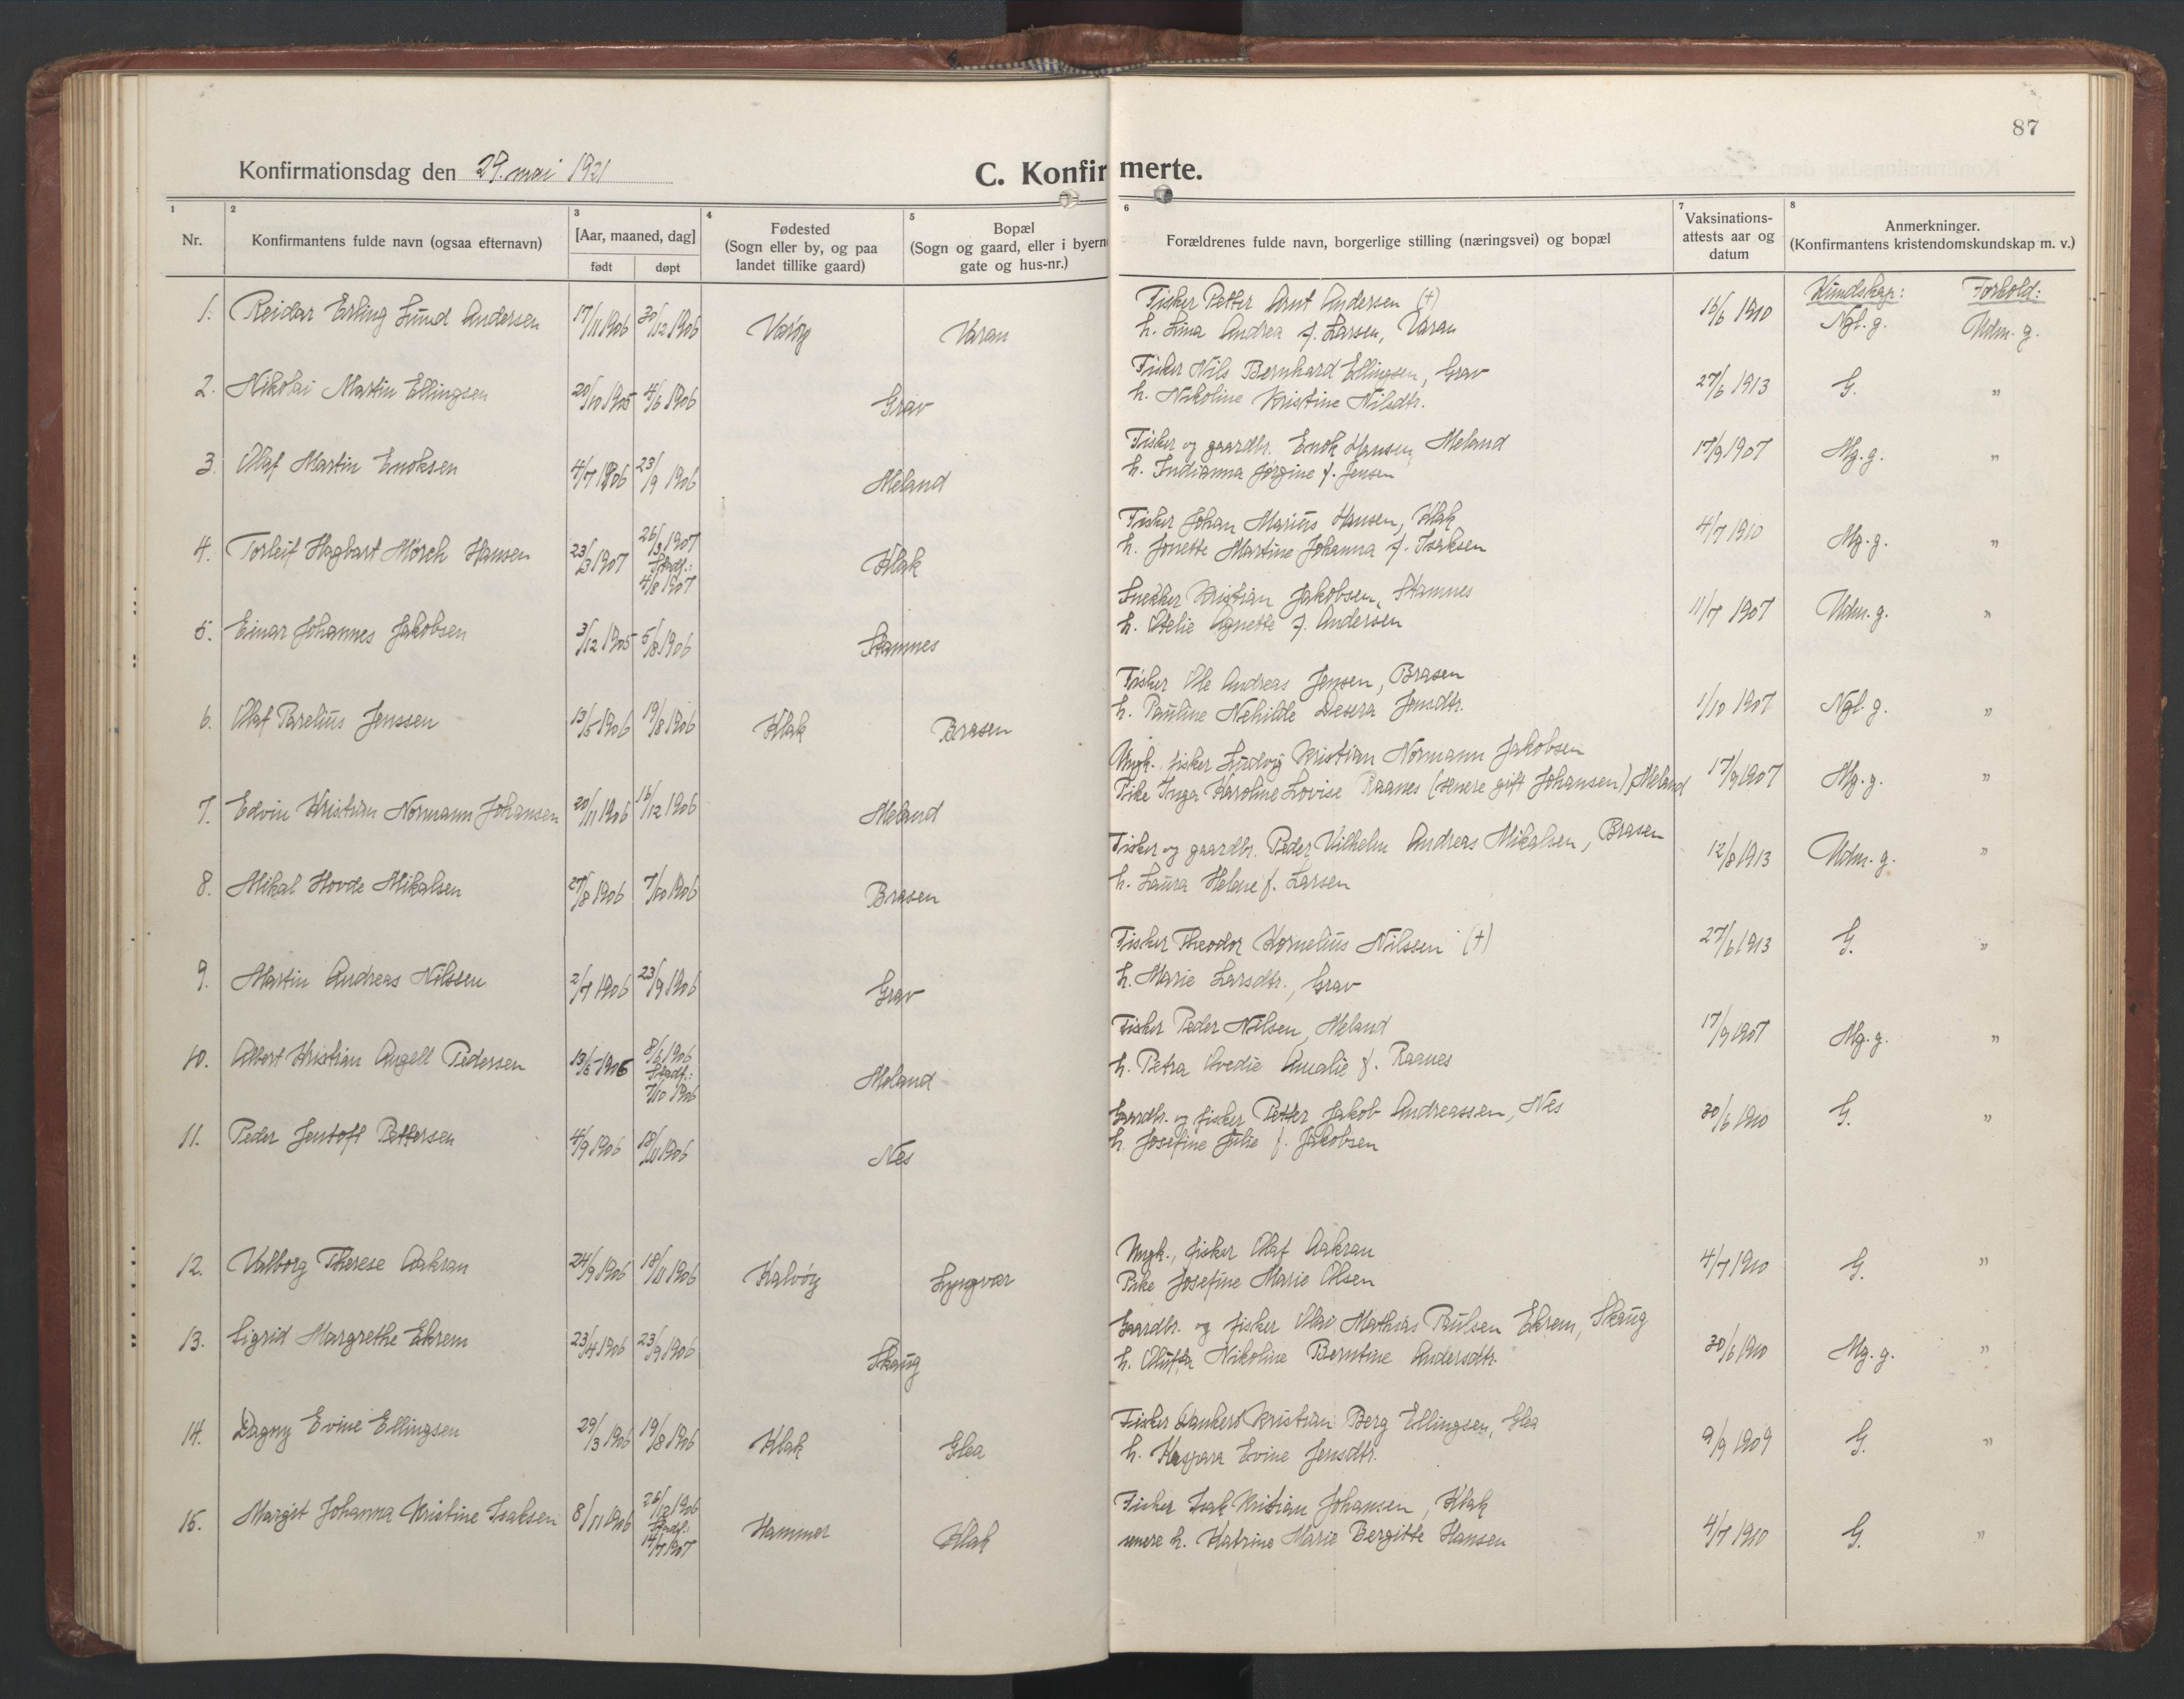 87
Konfirmationsdag den 29. mai 1921
C. Konfirmerte.
1 2 3 4 5 6 7 8
Nr.
Konfirmantens fulde navn (ogsaa efternavn)
[Aar, maaned, dag]
født døpt
Fødested
(Sogn eller by, og paa
landet tillike gaard)
Bopæl
(Sogn og gaard, eller i byern
gate og hus-nr.)
Forældrenes fulde navn, borgerlige stilling (næringsvei) og bopæl
Vaksinations-
attests aar og
datum
Anmerkninger.
(Konfirmantens kristendomskundskap m. v.)
Kundskap: Forhold:
1. Reidar Erling Lund Andersen 17/11 1906 30/12 1906 Varöy Varan
Fisker Petter Arnt Andersen (+)
h. Lina Andrea f. Larsen, Varan
16/6 1910 Ngl. g. Udm. g.
2. Nikolai Martin Ellingsen 20/10 1905 4/6 1906 Grav
Fisker Nils Bernhard Ellingsen, Grav
h. Nikoline Kristine Nilsdtr.
27/6 1913 G. "
3. Olaf Martin Enoksen 4/7 1906 23/9 1906 Meland
Fisker og gaardbr. Enok Hansen, Meland
h. Indianna Jørgine f. Jensen
17/9 1907 Mg. g. "
4. Torleif Hagbart Mörch Hansen 23/3 1907 26/3 1907
Stadf.:
4/8 1907
Klak
Fisker Johan Marius Hansen, Klak
h. Jonette Martine Johanna f. Isaksen
4/7 1910 Mg. g. "
5. Einar Johannes Jakobsen 3/12 1905 5/8 1906 Stamnes
Snekker Kristian Jakobsen, Stamnes
h. Otelie Agnette f. Andersen
11/7 1907 Udm. g. "
6. Olaf Parelius Jenssen 13/5 1906 19/8 1906 Klak Brasen
Fisker Ole Andreas Jensen, Brasen
h. Pauline Nehilde Desera Jensdtr.
1/10 1907 Ngl. g. "
7. Edvin Kristian Normann Johansen 20/11 1906 16/12 1906 Meland
Ungk., fisker Ludvig Kristian Normann Jakobsen
Pike Inga Karoline Lovise Raanes (senere gift Johansen), Meland
17/9 1907 Mg. g. "
8. Mikal Hovde Mikalsen 27/8 1906 7/10 1906 Brasen
Fisker og gaardbr. Peder Vilhelm Andreas Mikalsen, Brasen
h. Laura Helene f. Larsen
12/8 1913 Udm. g. "
9. Martin Andreas Nilssen 2/7 1906 23/9 1906 Grav
Fisker Theodor Kornelius Nilssen (+)
h. Marie Larsdtr., Grav
27/6 1913 G. "
10. Albert Kristian Angell Pedersen 13/5 1906 8/6 1906
Stadf.:
7/10 1906
Meland
Fisker Peder Nilsen, Meland
h. Petra Ovedie Amalie f. Raanes
17/9 1907 Mg. g. "
11. Peder Jentoft Pettersen 4/9 1906 18/11 1906 Nes
Gaardbr. og fisker Petter Jakob Andreassen, Nes
h. Josefine Julie f. Jakobsen
30/6 1910 G. "
12. Valborg Therese Aakran 24/9 1906 18/11 1906 Kalvöy Lyngvær
Ungk., fisker Olaf Aakran
Pike Josefine Marie Olsen
4/7 1910 G. "
13. Sigrid Margrethe Ekrem 23/4 1906 23/9 1906 Skaug
Gaardbr. og fisker Olav Mathias Paulsen Ekrem, Skaug
h. Oluffa Nikoline Berntine Andersdtr.
30/6 1910 Mg. g. "
14. Dagny Evine Ellingsen 29/3 1906 19/8 1906 Klak Glea
Fisker Dankert Kristian Berg Ellingsen, Glea
h. Kaspara Evine Jensdtr.
9/9 1909 G. "
15. Margit Johanna Kristine Isaksen 8/11 1906 26/12 1906
Stadf.:
14/7 1907
Hammer Klak
Fisker Isak Kristian Johansen, Klak
senere h. Katrine Marie Bergitte Hansen
4/7 1910 G. "